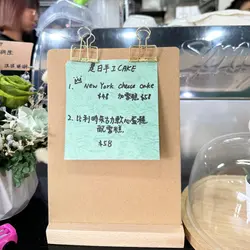 是日手工CAKE
1. New York cheese cake
$48 加雪糕 $58
2. 比利時朱古力軟心蛋糕
配雪糕
$58